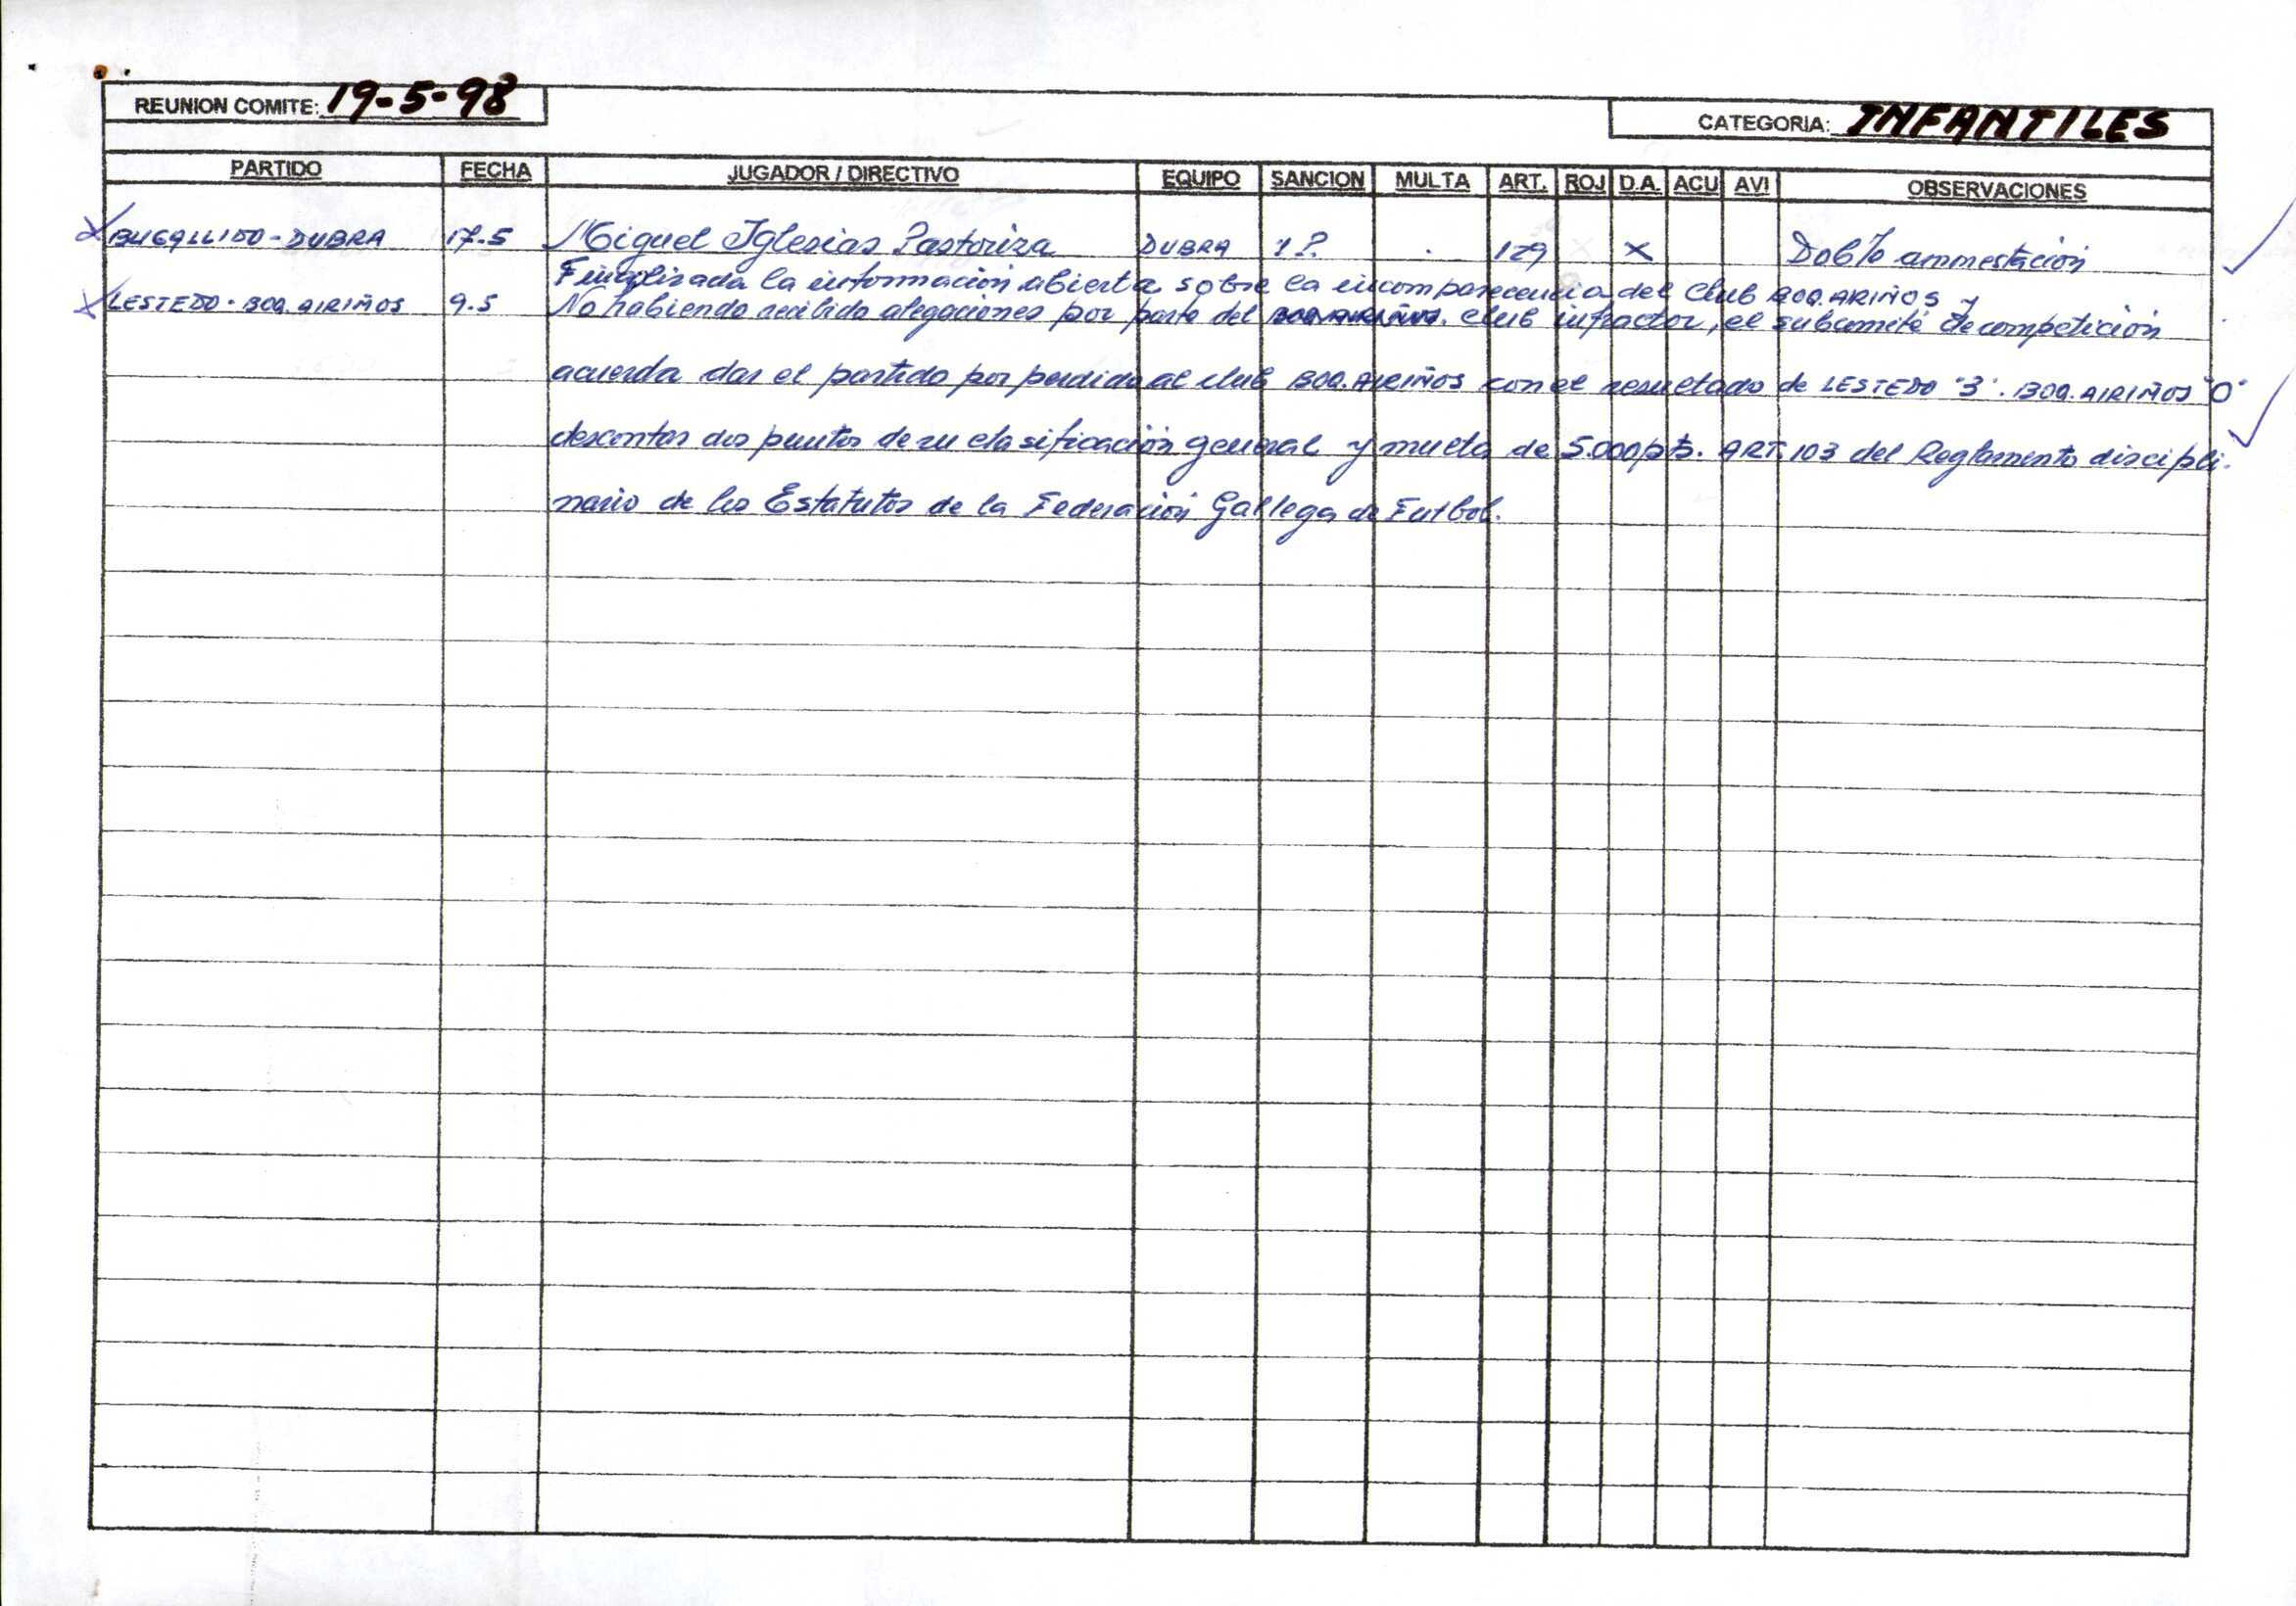 REUNION COMITE: 19-5-98
CATEGORIA: INFANTILES
PARTIDO FECHA JUGADOR / DIRECTIVO EQUIPO SANCION MULTA ART. ROJ D.A. ACU AVI OBSERVACIONES
BUGALLIDO - DUBRA 17-5 Miguel Iglesias Pastoriza DUBRA 1 P. . 129 X Doble ammestación
Finalizada la información abierta sobre la incomparecencia del club BOQ. ARIÑOS y
LESTEDO - BOQ. AIRIÑOS 9-5 No habiendo recibido alegaciones por parte del club infractor, el subcomité de competición
acuerda dar el partido por perdido al club BOQ. AIRIÑOS con el resultado de LESTEDO "3". BOQ. AIRIÑOS "0"
descontar dos puntos de su clasificación general y multa de 5.000 pts. ART. 103 del Reglamento discipli-
nario de los Estatutos de la Federación Gallega de Futbol.